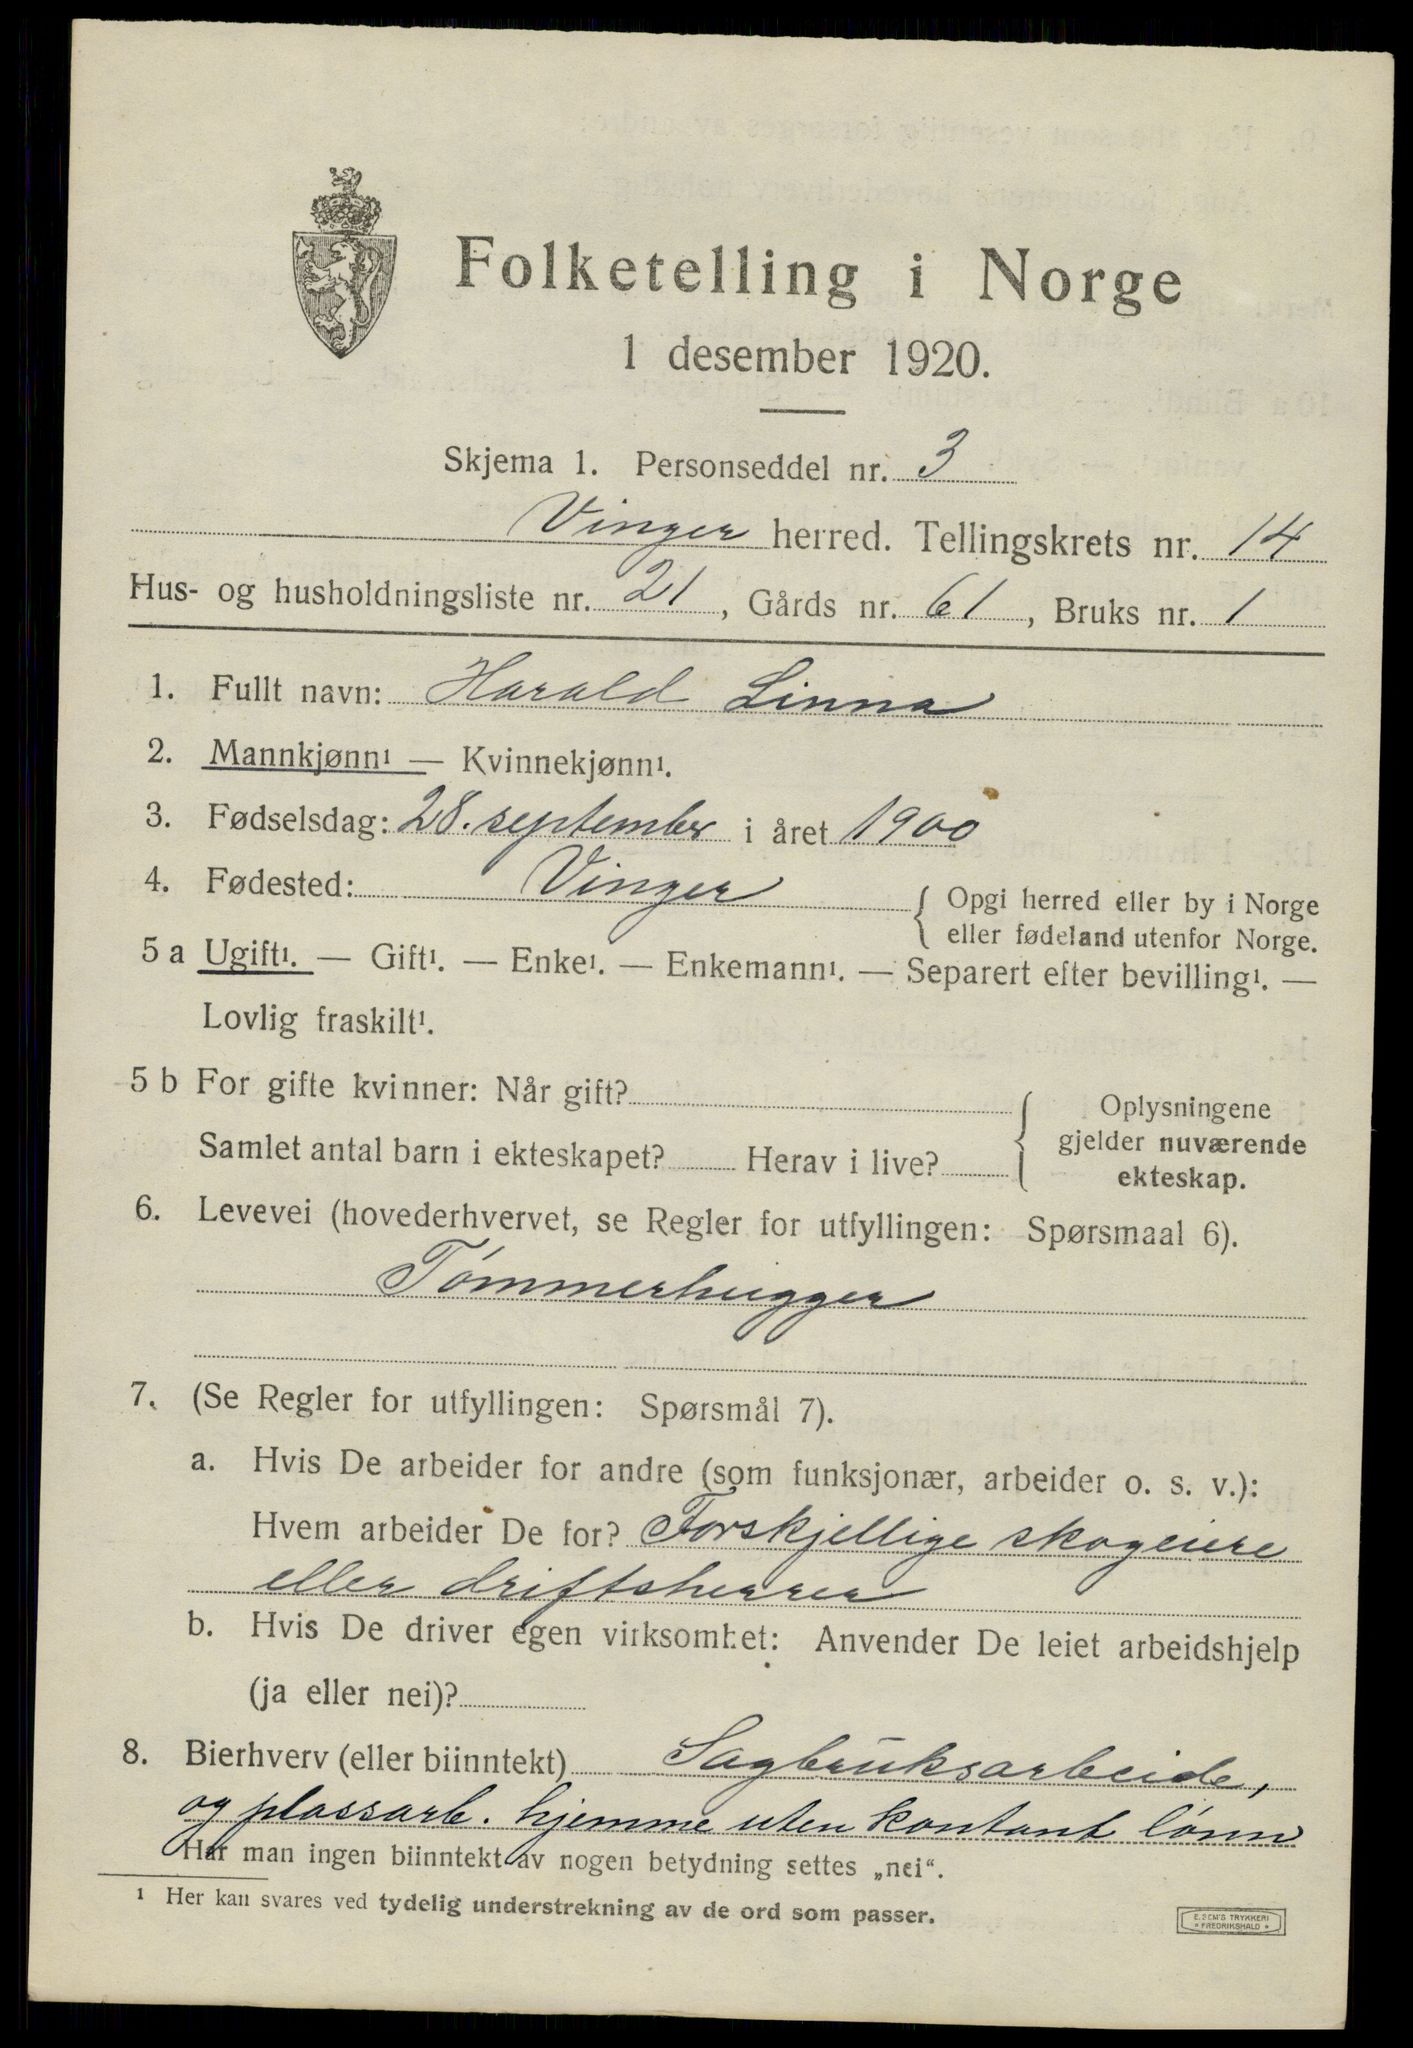 Folketelling i Norge
1 desember 1920.
Skjema 1. Personseddel nr. 3
Vinger herred. Tellingskrets nr. 14
Hus- og husholdningsliste nr. 21, Gårds nr. 61, Bruks nr. 1
1. Fullt navn: Harald Linna
2. Mannkjønn¹ — Kvinnekjønn¹.
3. Fødselsdag: 28. september i året 1900
4. Fødested: Vinger { Opgi herred eller by i Norge
eller fødeland utenfor Norge.
5 a Ugift¹. — Gift¹. — Enke¹. — Enkemann¹. — Separert efter bevilling¹. —
Lovlig fraskilt¹.
5 b For gifte kvinner: Når gift?
Samlet antal barn i ekteskapet? Herav i live?
{ Oplysningene
gjelder nuværende
ekteskap.
6. Levevei (hovederhvervet, se Regler for utfyllingen: Spørsmaal 6).
Tømmerhugger
7. (Se Regler for utfyllingen: Spørsmål 7).
a. Hvis De arbeider for andre (som funksjonær, arbeider o. s. v.):
Hvem arbeider De for? Forskjellige skogeiere
eller driftsherrer
b. Hvis De driver egen virksomhet: Anvender De leiet arbeidshjelp
(ja eller nei)?
8. Bierhverv (eller biinntekt) Sagbruksarbeide,
og plassarb. hjemme uten kontant lønn
Har man ingen biinntekt av nogen betydning settes „nei“.
¹ Her kan svares ved tydelig understrekning av de ord som passer.
E. SEM'S TRYKKERI
* FREDRIKSHALD *